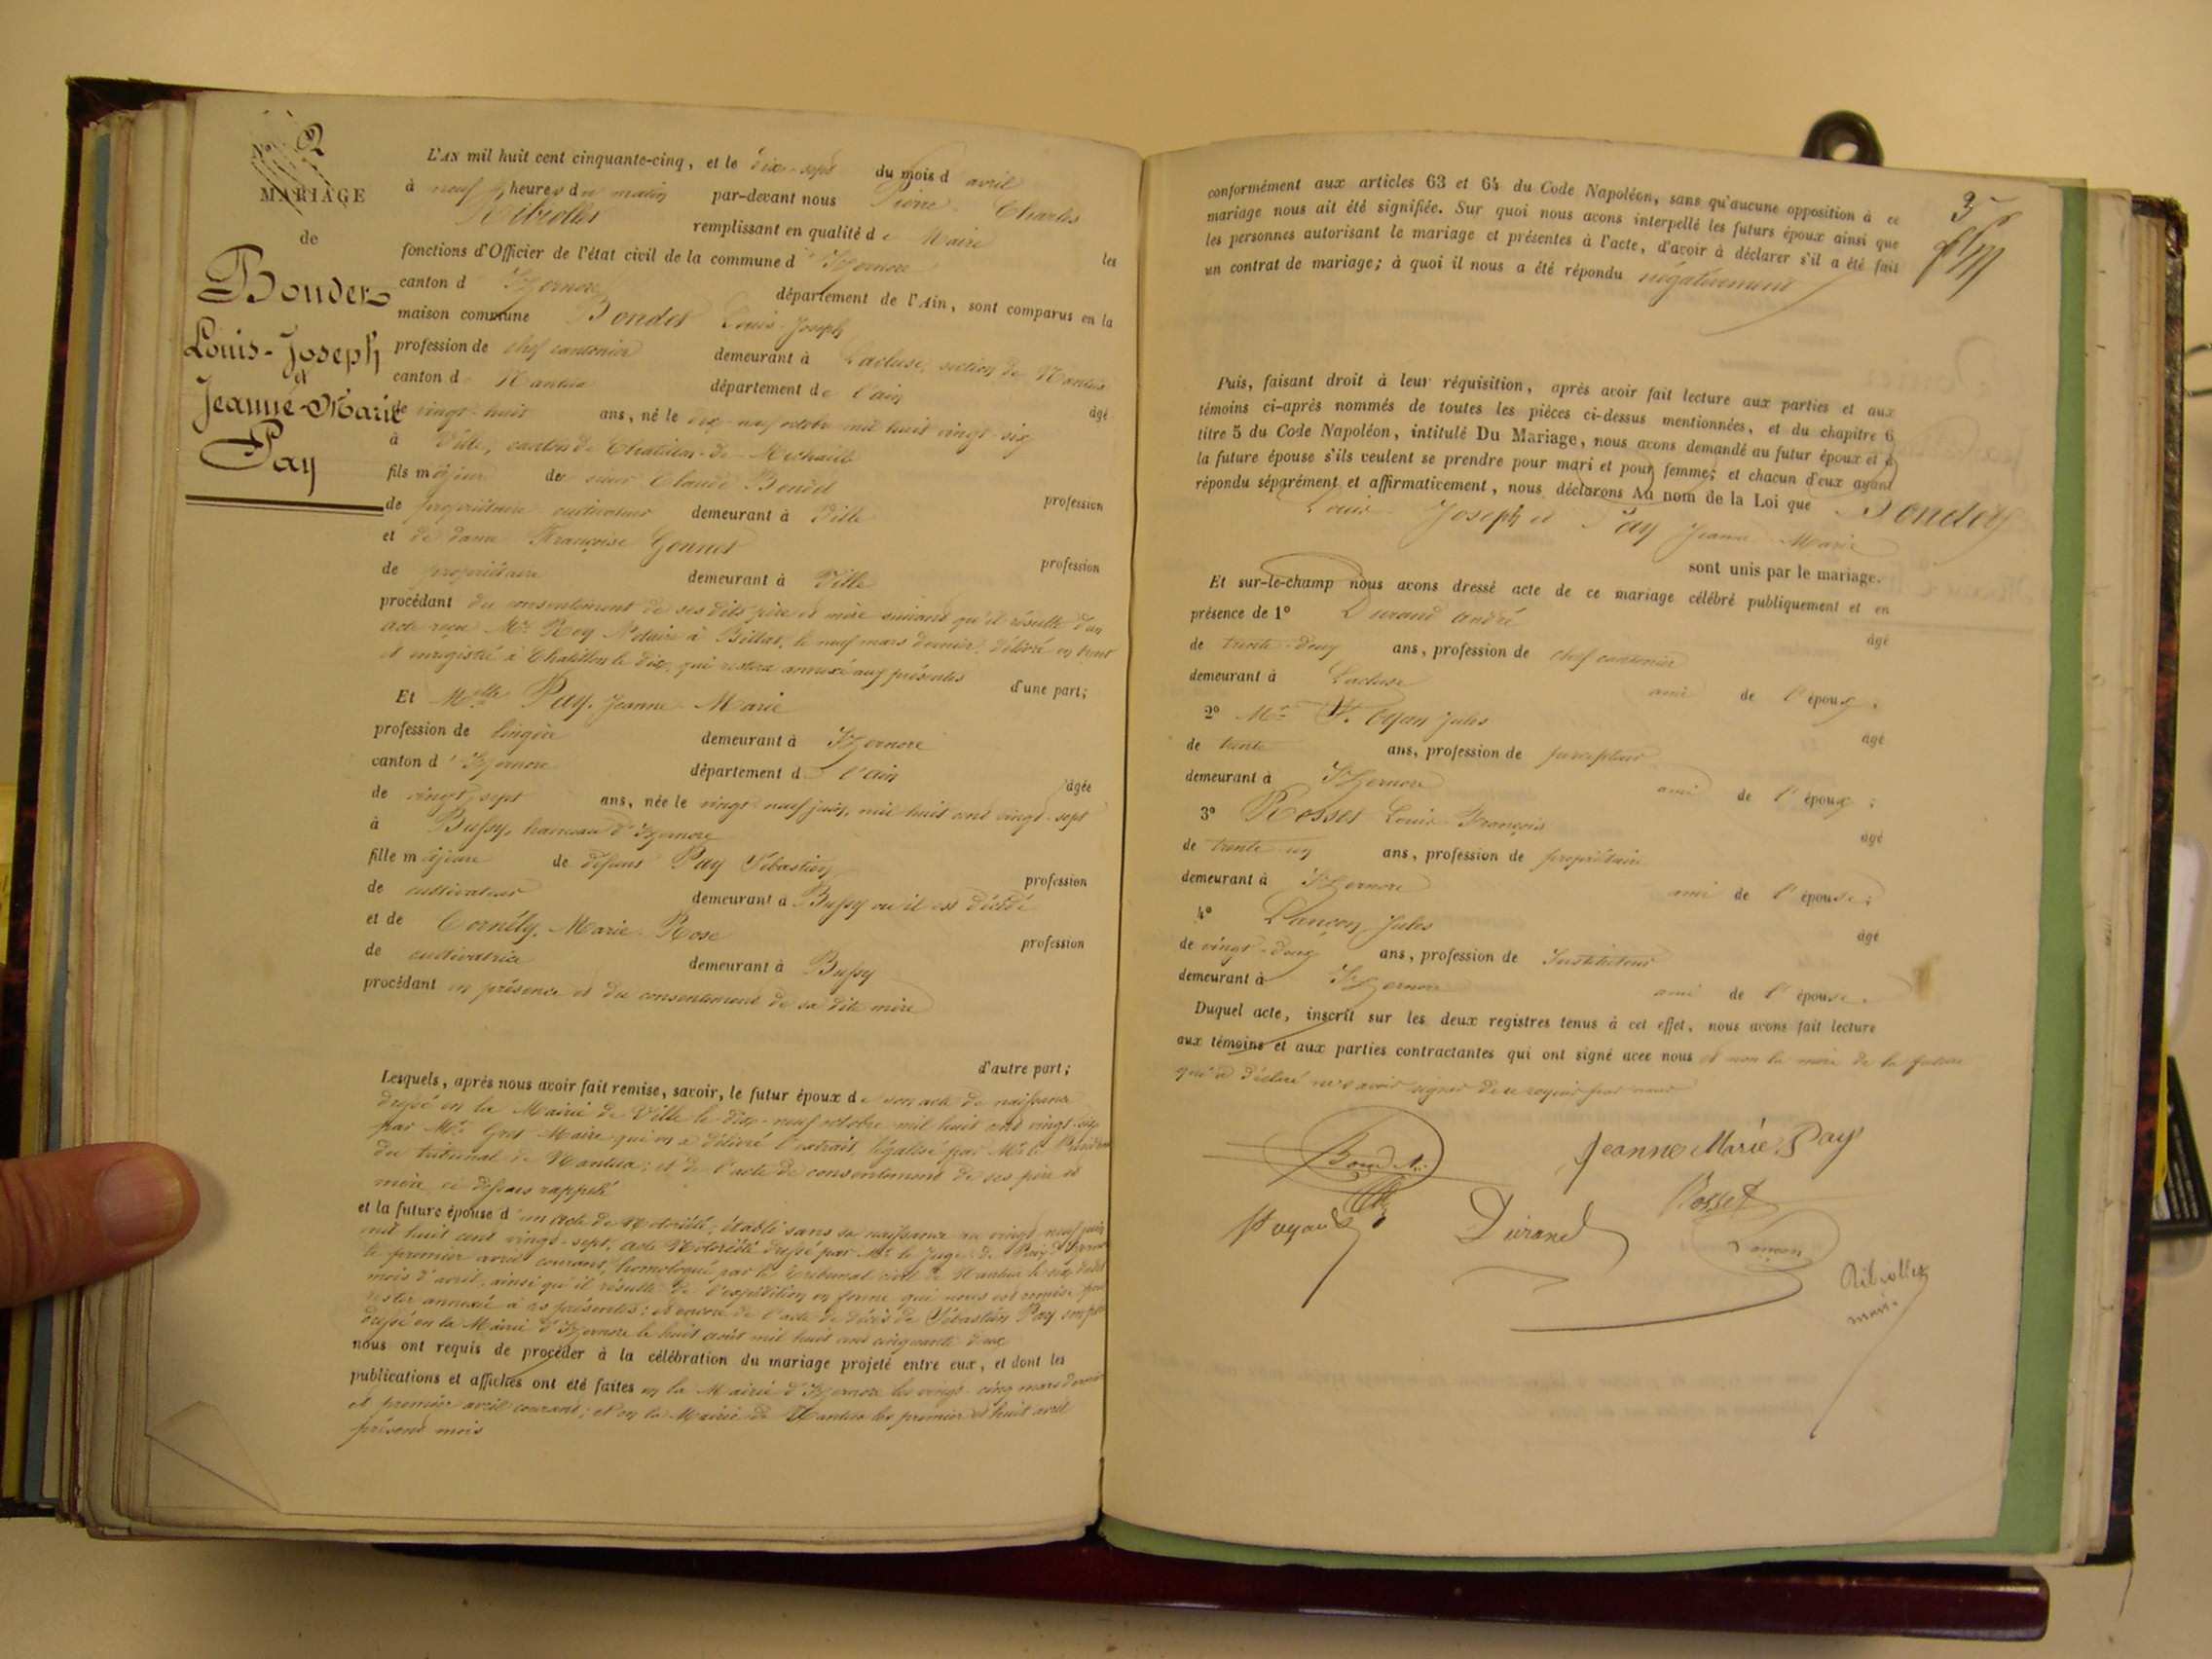 2
MARIAGE
de
Bondet
Louis-Joseph
et
Jeanne-Marie
Pay
L'AN mil huit cent cinquante-cinq, et le dix-sept du mois d'avril
à neuf heures du matin par-devant nous Pierre Charles
Ribiollet remplissant en qualité de Maire les
fonctions d'Officier de l'état civil de la commune d'Izernore
canton d'Izernore département de l'Ain, sont comparus en la
maison commune Bondet Louis-Joseph
profession de chef cantonier demeurant à Lacluse, section de Nantua
canton de Nantua département de l'ain âgé
de vingt-huit ans, né le dix-neuf octobre mil huit vingt-six
à Ville, canton de Chatillon-de-Michaille
fils majeur de sieur Claude Bondet profession
de propriétaire cultivateur demeurant à Ville
et de dame Françoise Gonnet profession
de propriétaire demeurant à Ville
procédant du consentement de ses dits père et mère suivant qu'il résulte d'un
acte reçu Mr Roy Notaire à Billiat, le neuf mars dernier, délivré en brevet
et enregistré à Chatillon le dix, qui restera annexé aux présentes d'une part;
Et Melle Pay, Jeanne-Marie
profession de lingère demeurant à Izernore
canton d'Izernore département de l'ain âgée
de vingt-sept ans, née le vingt-neuf juin, mil huit cent vingt-sept
à Bussy, hameau d'Izernore
fille majeure de défunt Pay Sébastien profession
de cultivateur demeurant à Bussy où il est décédé
et de Cornély, Marie-Rose profession
de cultivatrice demeurant à Bussy
procédant en présence et du consentement de sa dite mère
d'autre part;
Lesquels, après nous avoir fait remise, savoir, le futur époux de son acte de naissance
dressé en la Mairie de Ville le dix-neuf octobre mil huit cent vingt-six
par Mr Gros Maire qui en a délivré l'extrait, légalisé par Mr le Président
du tribunal de Nantua; et de l'acte de consentement de ses père et
mère ci dessus rappelé
et la future épouse d'un acte de Notoriété, établi sans sa naissance au vingt-neuf juin
mil huit cent vingt-sept, acte Notoriété dressé par Mr le Juge de Paix d'Izernore
le premier avril courant, homologué par le tribunal civil de Nantua le six dudit
mois d'avril, ainsi qu'il résulte de l'expédition en forme qui nous est remise pour
rester annexée à ces présentes; et encore de l'acte de décès de Sébastien Pay son père
dressé en la Mairie d'Izernore le huit août mil huit cent cinquante deux
nous ont requis de procéder à la célébration du mariage projeté entre eux, et dont les
publications et affiches ont été faites en la Mairie d'Izernore les vingt-cinq mars dernier
et premier avril courant; et en la Mairie de Nantua les premier et huit avril
présent mois
3
conformément aux articles 63 et 64 du Code Napoléon, sans qu'aucune opposition à ce
mariage nous ait été signifiée. Sur quoi nous avons interpellé les futurs époux ainsi que
les personnes autorisant le mariage et présentes à l'acte, d'avoir à déclarer s'il a été fait
un contrat de mariage; à quoi il nous a été répondu négativement
Puis, faisant droit à leur réquisition, après avoir fait lecture aux parties et aux
témoins ci-après nommés de toutes les pièces ci-dessus mentionnées, et du chapitre 6
titre 5 du Code Napoléon, intitulé Du Mariage, nous avons demandé au futur époux et à
la future épouse s'ils veulent se prendre pour mari et pour femme; et chacun d'eux ayant
répondu séparément et affirmativement, nous déclarons Au nom de la Loi que Bondet
Louis Joseph et Pay Jeanne-Marie
sont unis par le mariage.
Et sur-le-champ nous avons dressé acte de ce mariage célébré publiquement et en
présence de 1° Durand André âgé
de trente-deux ans, profession de chef cantonier
demeurant à Lacluse ami de l'époux;
2° Mr Poyan Jules âgé
de trente ans, profession de percepteur
demeurant à Izernore ami de l'époux;
3° Rosset Louis-François âgé
de trente-un ans, profession de propriétaire
demeurant à Izernore ami de l'épouse;
4° Lançon, Jules âgé
de vingt-deux ans, profession de Instituteur
demeurant à Izernore ami de l'épouse.
Duquel acte, inscrit sur les deux registres tenus à cet effet, nous avons fait lecture
aux témoins et aux parties contractantes qui ont signé avec nous et non la mère de la future
qui a déclaré ne savoir signer de ce requis par nous
Bondet
Jeanne Marie Pay
Durand
Rosset
Lançon
Ribiollet
maire